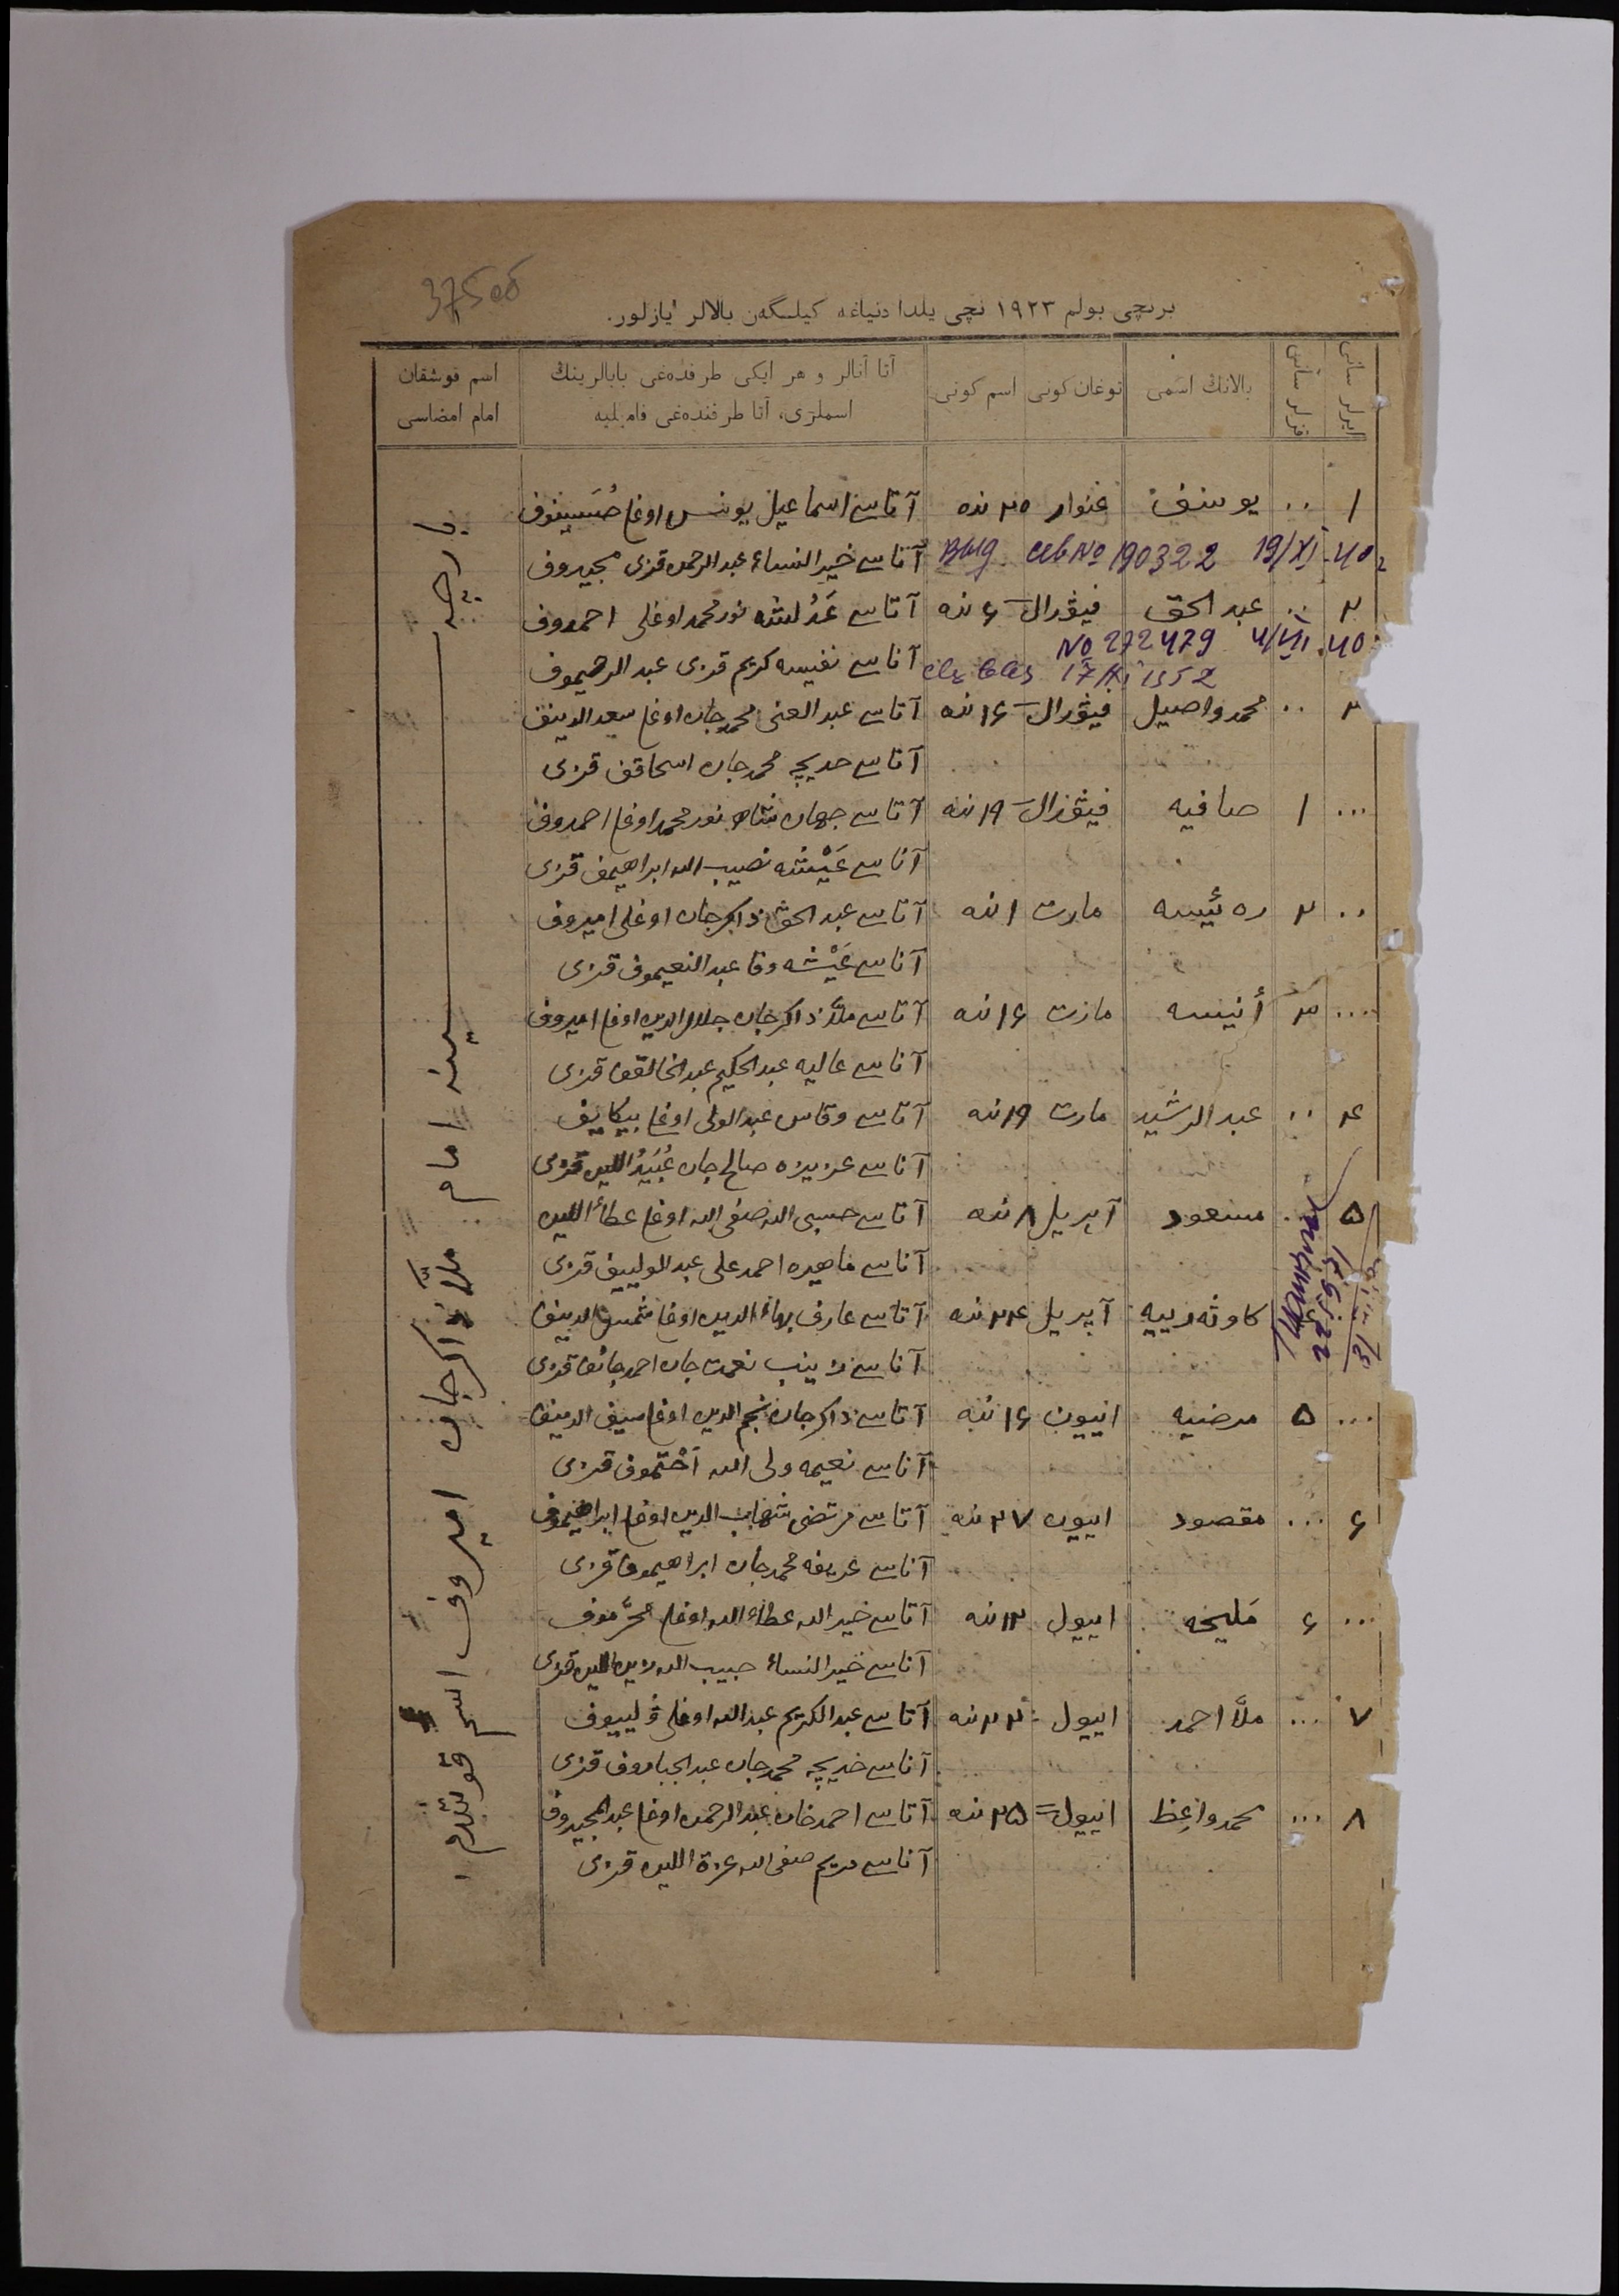 37 об
برنچی بولم ۱۹۲۳ نچی يلدا دنياغه كيلگەن بالالر يازلور.
ايرلر سانی
قزلر سانی
بالانڭ اسمی
توغان كونی
اسم كونی
آتا آنالر و هر ايكی طرفدەغی بابالرينڭ
اسملری، آتا طرفندەغی فاميليه
اسم قوشقان
امام امضاسی
۱ .. يوسف غنوار ۲۵ نده آتاسی اسماعيل يونس اوغلی حُسَيينوف
Выд. св No 190322 19/XI-40г آناسی خير النساء عبدالرحمن قزی مجيدوف
۲ .. عبد الحق فيۋرال ۶ نده آتاسی عَدُلشه نورمحمد اوغلی احمدوف
No 272479 4/VII.40 آناسی نفيسه كريم قزی عبد الرحيموف
17/XI 1952
۳ .. محمد واصيل فيۋرال ۱۶ نده آتاسی عبد الغنی محمدجان اوغلی سعد الدينف
آناسی خديجه محمد جان اسحاقف قزی
... ۱ صافيه فيۋرال ۱۹ نده آتاسی جهان شاه نورمحمد اوغلی احمدوف
آناسی عَيْشه نصيب الله ابراهيمف قزی
.. ۲ رەئيسه مارت ۱ نده آتاسی عبد الحق ذاكرجان اوغلی اميروف
آناسی عَيْشه وفا عبد النعيموف قزی
.... ۳ أنيسه مارت ۱۶ نده آتاسی ملّا ذاكرجان جلال الدين اوغلی اميروف
آناسی عاليه عبد الحكيم عبد الخالقف قزی
۴ .. عبد الرشيد مارت ۱۹ نده آتاسی وقاص عبد الولی اوغلی بيكايف
آناسی عزيزه صالح جان عُبَيدُ اللين قزی
۵ .. مسعود آپريل ۸ نده آتاسی حسبی الله صفی الله اوغلی عطاء اللين
آناسی ماهيره احمد علی عبد الوليييف قزی
كاوثەرييه آپريل ۲۴ نده آتاسی عارف بهاء الدين اوغلی شمس الدينف
آناسی زينب نعمت جان احمد جانف قزی
... ۵ مرضيه ايیون ۱۶ نده آتاسی ذاكرجان نجم الدين اوغلی سيف الدينف
آناسی نعيمه ولی الله اَخْتَموف قزی
۶ ... مقصود ايیون ۲۷ نده آتاسی مرتضی شهاب الدين اوغلی ابراهيموف
آناسی عريفه محمد جان ابراهيموف قزی
... ۶ مَليحه ايیول ۱۳ نده آتاسی خير الله عطاء الله اوغلی محرَّموف
آناسی خير النساء حبيب الله زين اللين قزی
۷ ... ملّا احمد ايیول ۲۳ نده آتاسی عبد الكريم عبد الله اوغلی ۋلييوف
آناسی خديجه محمد جان عبد الجباروف قزی
۸ ... محمد واعِظ ايیول ۲۵ نده آتاسی احمد خان عبد الرحمن اوغلی عبد المجيدوف
آناسی مريم صفی الله عزة اللين قزی
امام ملّا ذاكرجان اميروف اسم قوشدم